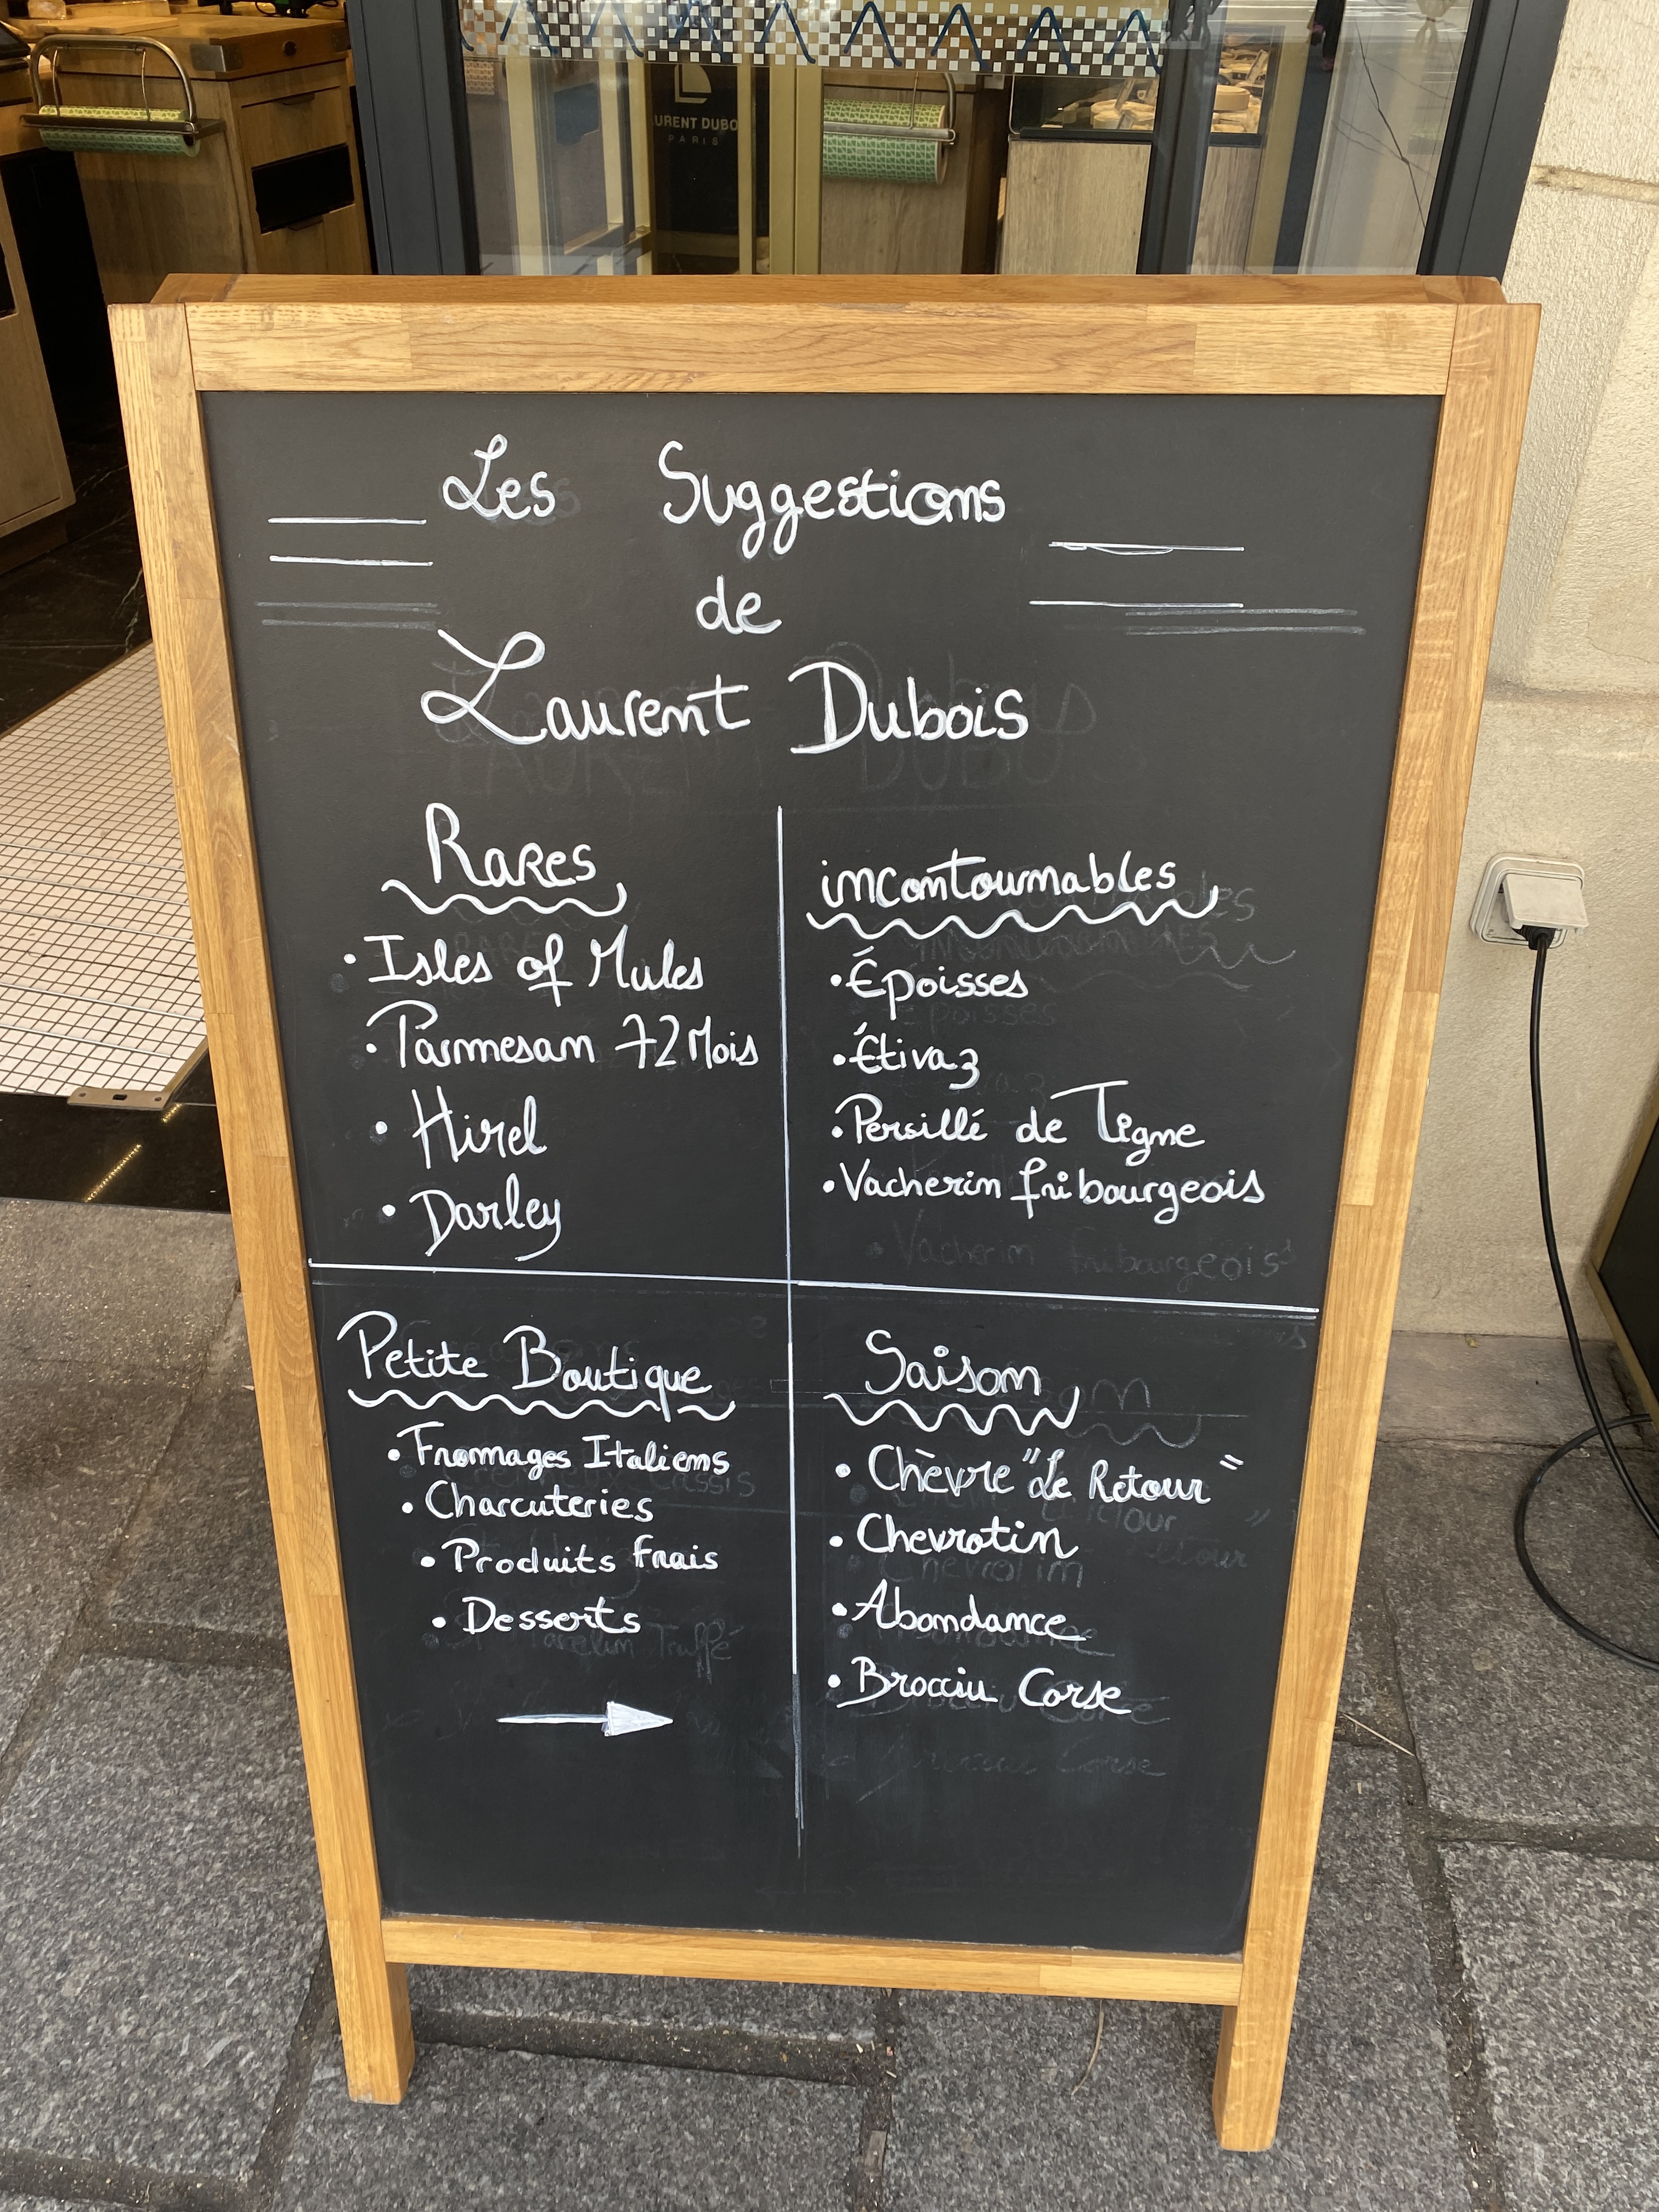 URENT DUBO
PARIS
Les Suggestions
de
Laurent Dubois
Rares
• Isles of Mules
• Parmesan 72 Mois
• Hirel
• Darley
incontournables
• Époisses
• Étivaz
• Persillé de Tigne
• Vacherin fribourgeois
Petite Boutique
• Fromages Italiens
• Charcuteries
• Produits frais
• Desserts
Saison
• Chèvre "Le Retour"
• Chevrotin
• Abondance
• Brocciu Corse